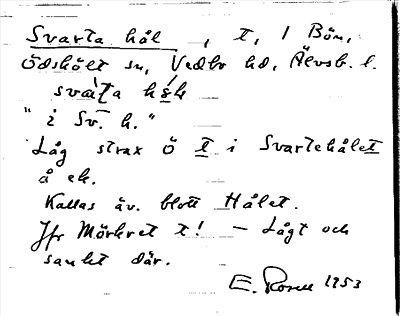 Svarta hål, t, i Bön,
Ödskölt sn, Vedbo hd, Älvsb. l.
svat́a hɵ́l
"i Sv. h."
Låg strax ö t i Svartehålet
å ek.
Kallas äv. blott Hålet.
Jfr Mörkret t! – Lågt och
sankt där.
E. Rosell 1953